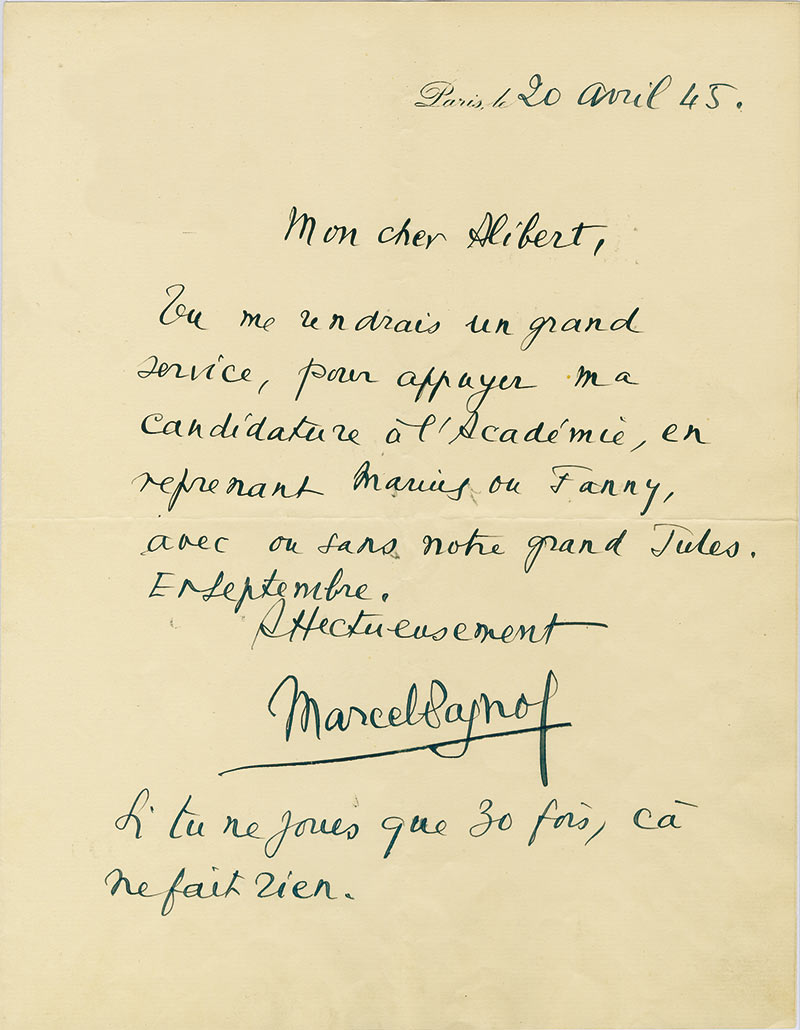 Paris, le 20 avril 45.
Mon cher Alibert,
Tu me rendrais un grand
service, pour appuyer ma
candidature à l'Académie, en
reprenant Marius ou Fanny,
avec ou sans notre grand Jules.
En Septembre.
Affectueusement
Marcel Pagnol
Si tu ne joues que 30 fois, cà
ne fait rien.